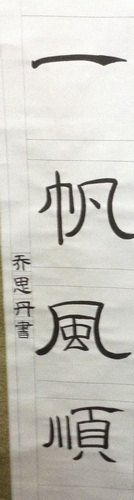 一帆風順
乔思丹書